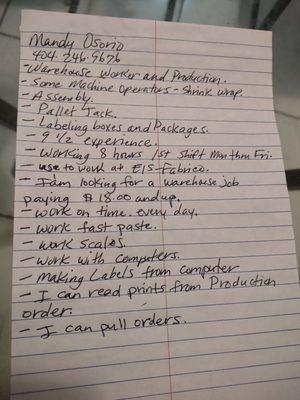 Mandy Osorio
404-246-9676
- Warehouse Worker and Production.
- Some Machine Operators - Shrink wrap.
- Assembly.
- Pallet Jack.
- Labeling boxes and Packages.
- 9 1/2 experience.
- Working 8 hours 1st shift Mon thru Fri.
- use to work at EIS-Fabrico.
- I am looking for a warehouse job
paying $18.00 and up.
- work on time. every day.
- work fast paste.
- work scales.
- work with computers.
- Making Labels from computer
- I can read prints from Production
order.
- I can pull orders.